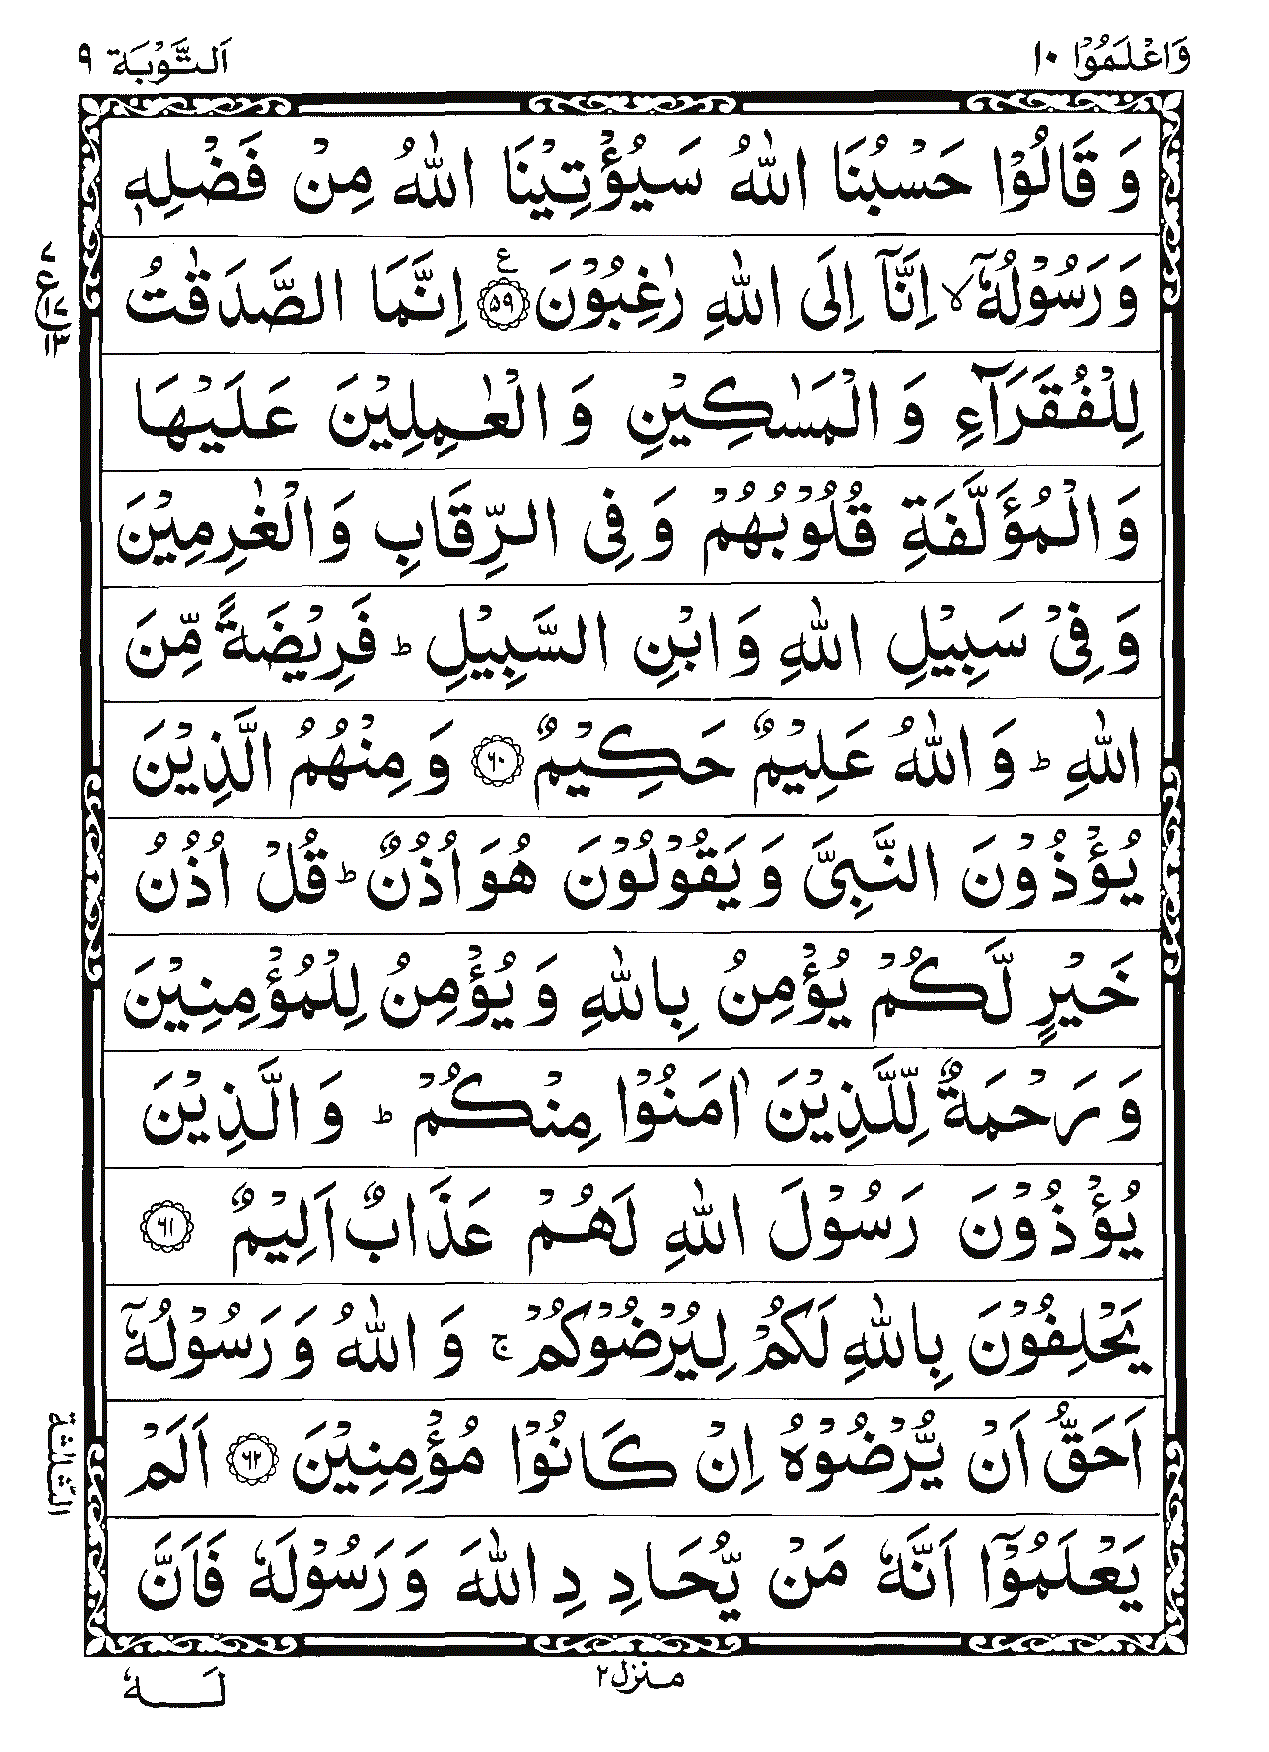 وَاعْلَمُوْا ١٠
اَلتَّوْبَة ٩
وَ قَالُوْا حَسْبُنَا اللّٰهُ سَيُؤْتِيْنَا اللّٰهُ مِنْ فَضْلِهٖ
وَ رَسُوْلُهٗۤ ۙ اِنَّاۤ اِلَى اللّٰهِ رٰغِبُوْنَ ۧ ﴿۵۹﴾ اِنَّمَا الصَّدَقٰتُ
ع ٧ ١٧ ١٣
لِلْفُقَرَآءِ وَ الْمَسٰكِيْنِ وَ الْعٰمِلِيْنَ عَلَيْهَا
وَ الْمُؤَلَّفَةِ قُلُوْبُهُمْ وَ فِى الرِّقَابِ وَ الْغٰرِمِيْنَ
وَ فِىْ سَبِيْلِ اللّٰهِ وَ ابْنِ السَّبِيْلِ ؕ فَرِيْضَةً مِّنَ
اللّٰهِ ؕ وَ اللّٰهُ عَلِيْمٌ حَكِيْمٌ ﴿۶۰﴾ وَ مِنْهُمُ الَّذِيْنَ
يُؤْذُوْنَ النَّبِىَّ وَ يَقُوْلُوْنَ هُوَ اُذُنٌ ؕ قُلْ اُذُنُ
خَيْرٍ لَّكُمْ يُؤْمِنُ بِاللّٰهِ وَ يُؤْمِنُ لِلْمُؤْمِنِيْنَ
وَ رَحْمَةٌ لِّلَّذِيْنَ اٰمَنُوْا مِنْكُمْ ؕ وَ الَّذِيْنَ
يُؤْذُوْنَ رَسُوْلَ اللّٰهِ لَهُمْ عَذَابٌ اَلِيْمٌ ﴿۶۱﴾
يَحْلِفُوْنَ بِاللّٰهِ لَكُمْ لِيُرْضُوْكُمْ ۚ وَ اللّٰهُ وَ رَسُوْلُهٗۤ
اَحَقُّ اَنْ يُّرْضُوْهُ اِنْ كَانُوْا مُؤْمِنِيْنَ ﴿۶۲﴾ اَلَمْ
الثالثة
يَعْلَمُوْۤا اَنَّهٗ مَنْ يُّحَادِدِ اللّٰهَ وَ رَسُوْلَهٗ فَاَنَّ
منزل ٢
لَهٗ